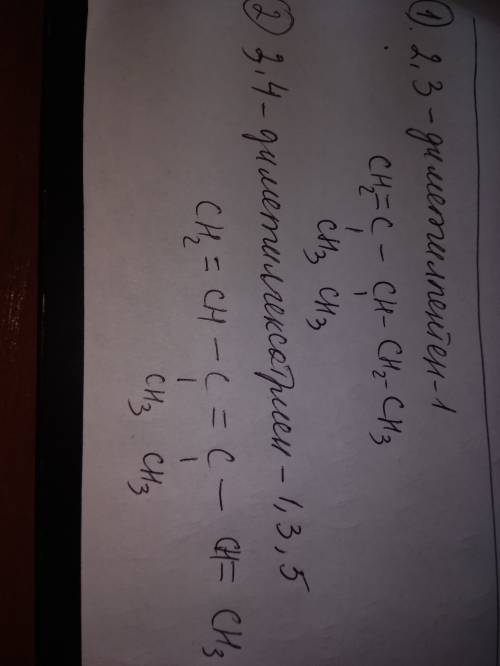 1. 2,3-диметилпентен-1
CH2=C-CH-CH2-CH3
CH3 CH3
2 3,4-диметилгексатриен-1,3,5
CH2=CH-C=C-CH=CH3
CH3 CH3